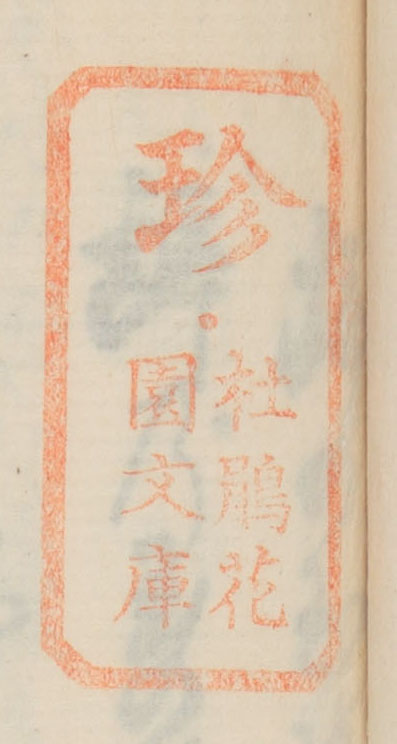 珍・
杜鵑花
園文庫